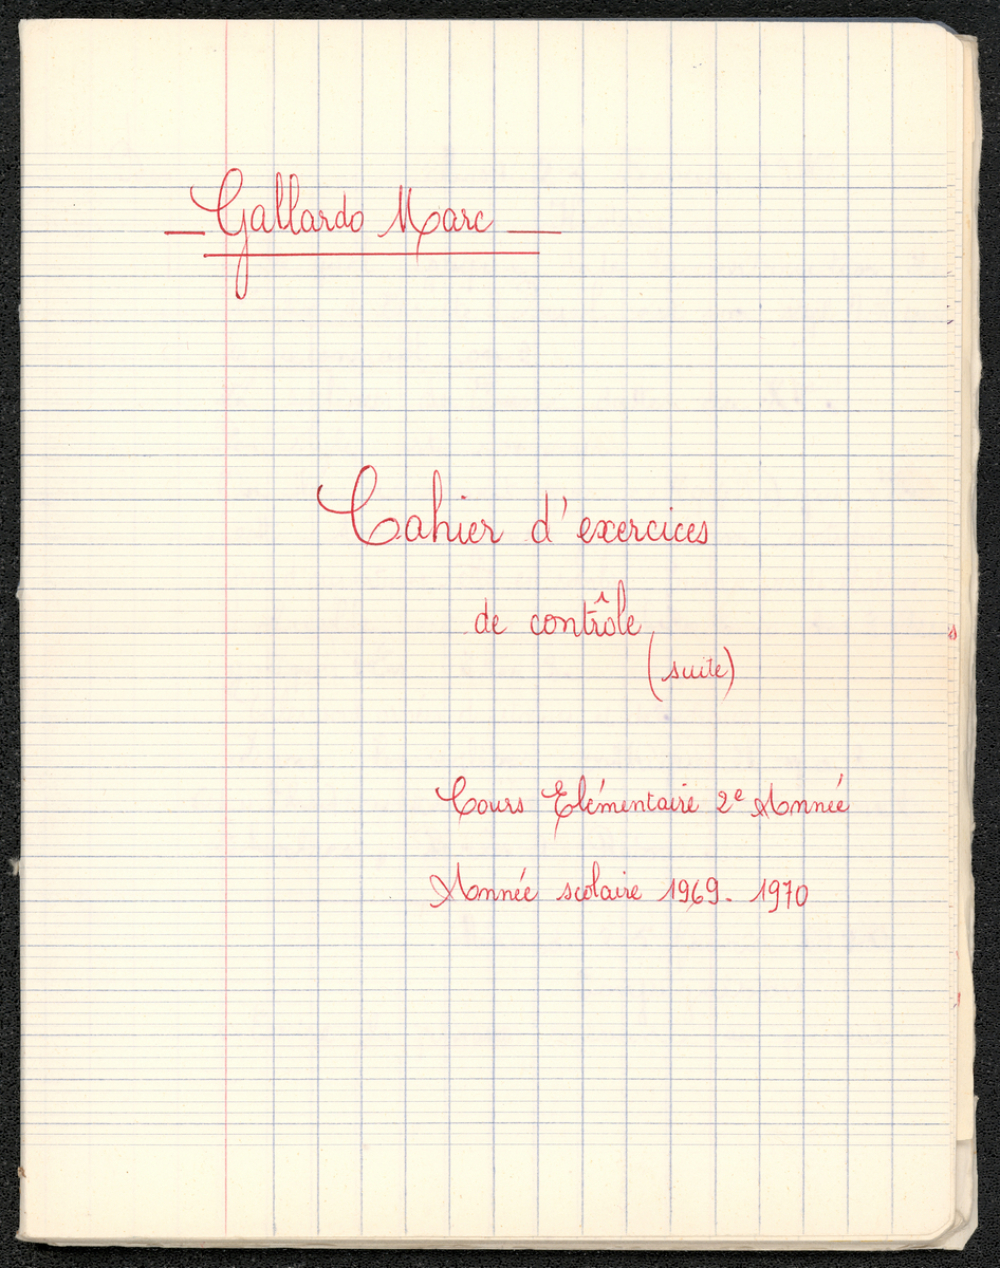 _ Gallardo Marc _
Cahier d'exercices
de contrôle
(suite)
Cours Elémentaire 2e Année
Année scolaire 1969. 1970